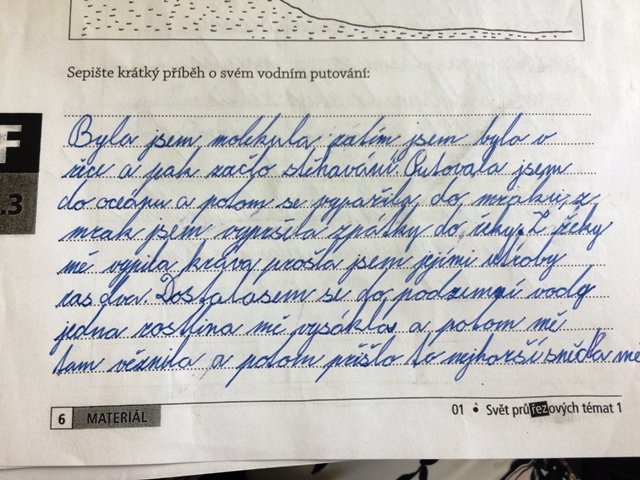 Sepište krátký příběh o svém vodním putování:
F
.3
Byla jsem molekula, zatím jsem byla v
řece a pak začlo stěhavání. Putovala jsem
do oceánu a potom se vypařila do mraku, z
mrak jsem vypršela zpátky do řeky. Z řeky
mě vypila kráva prošla jsem jejími útroby
ras dva. Dostalasem se do podzemní vody
jedna rostlina mě vysákla a potom mě
tam věznila a potom přišlo to nejhorší snědla me
6 MATERIÁL
01 • Svět průřezových témat 1